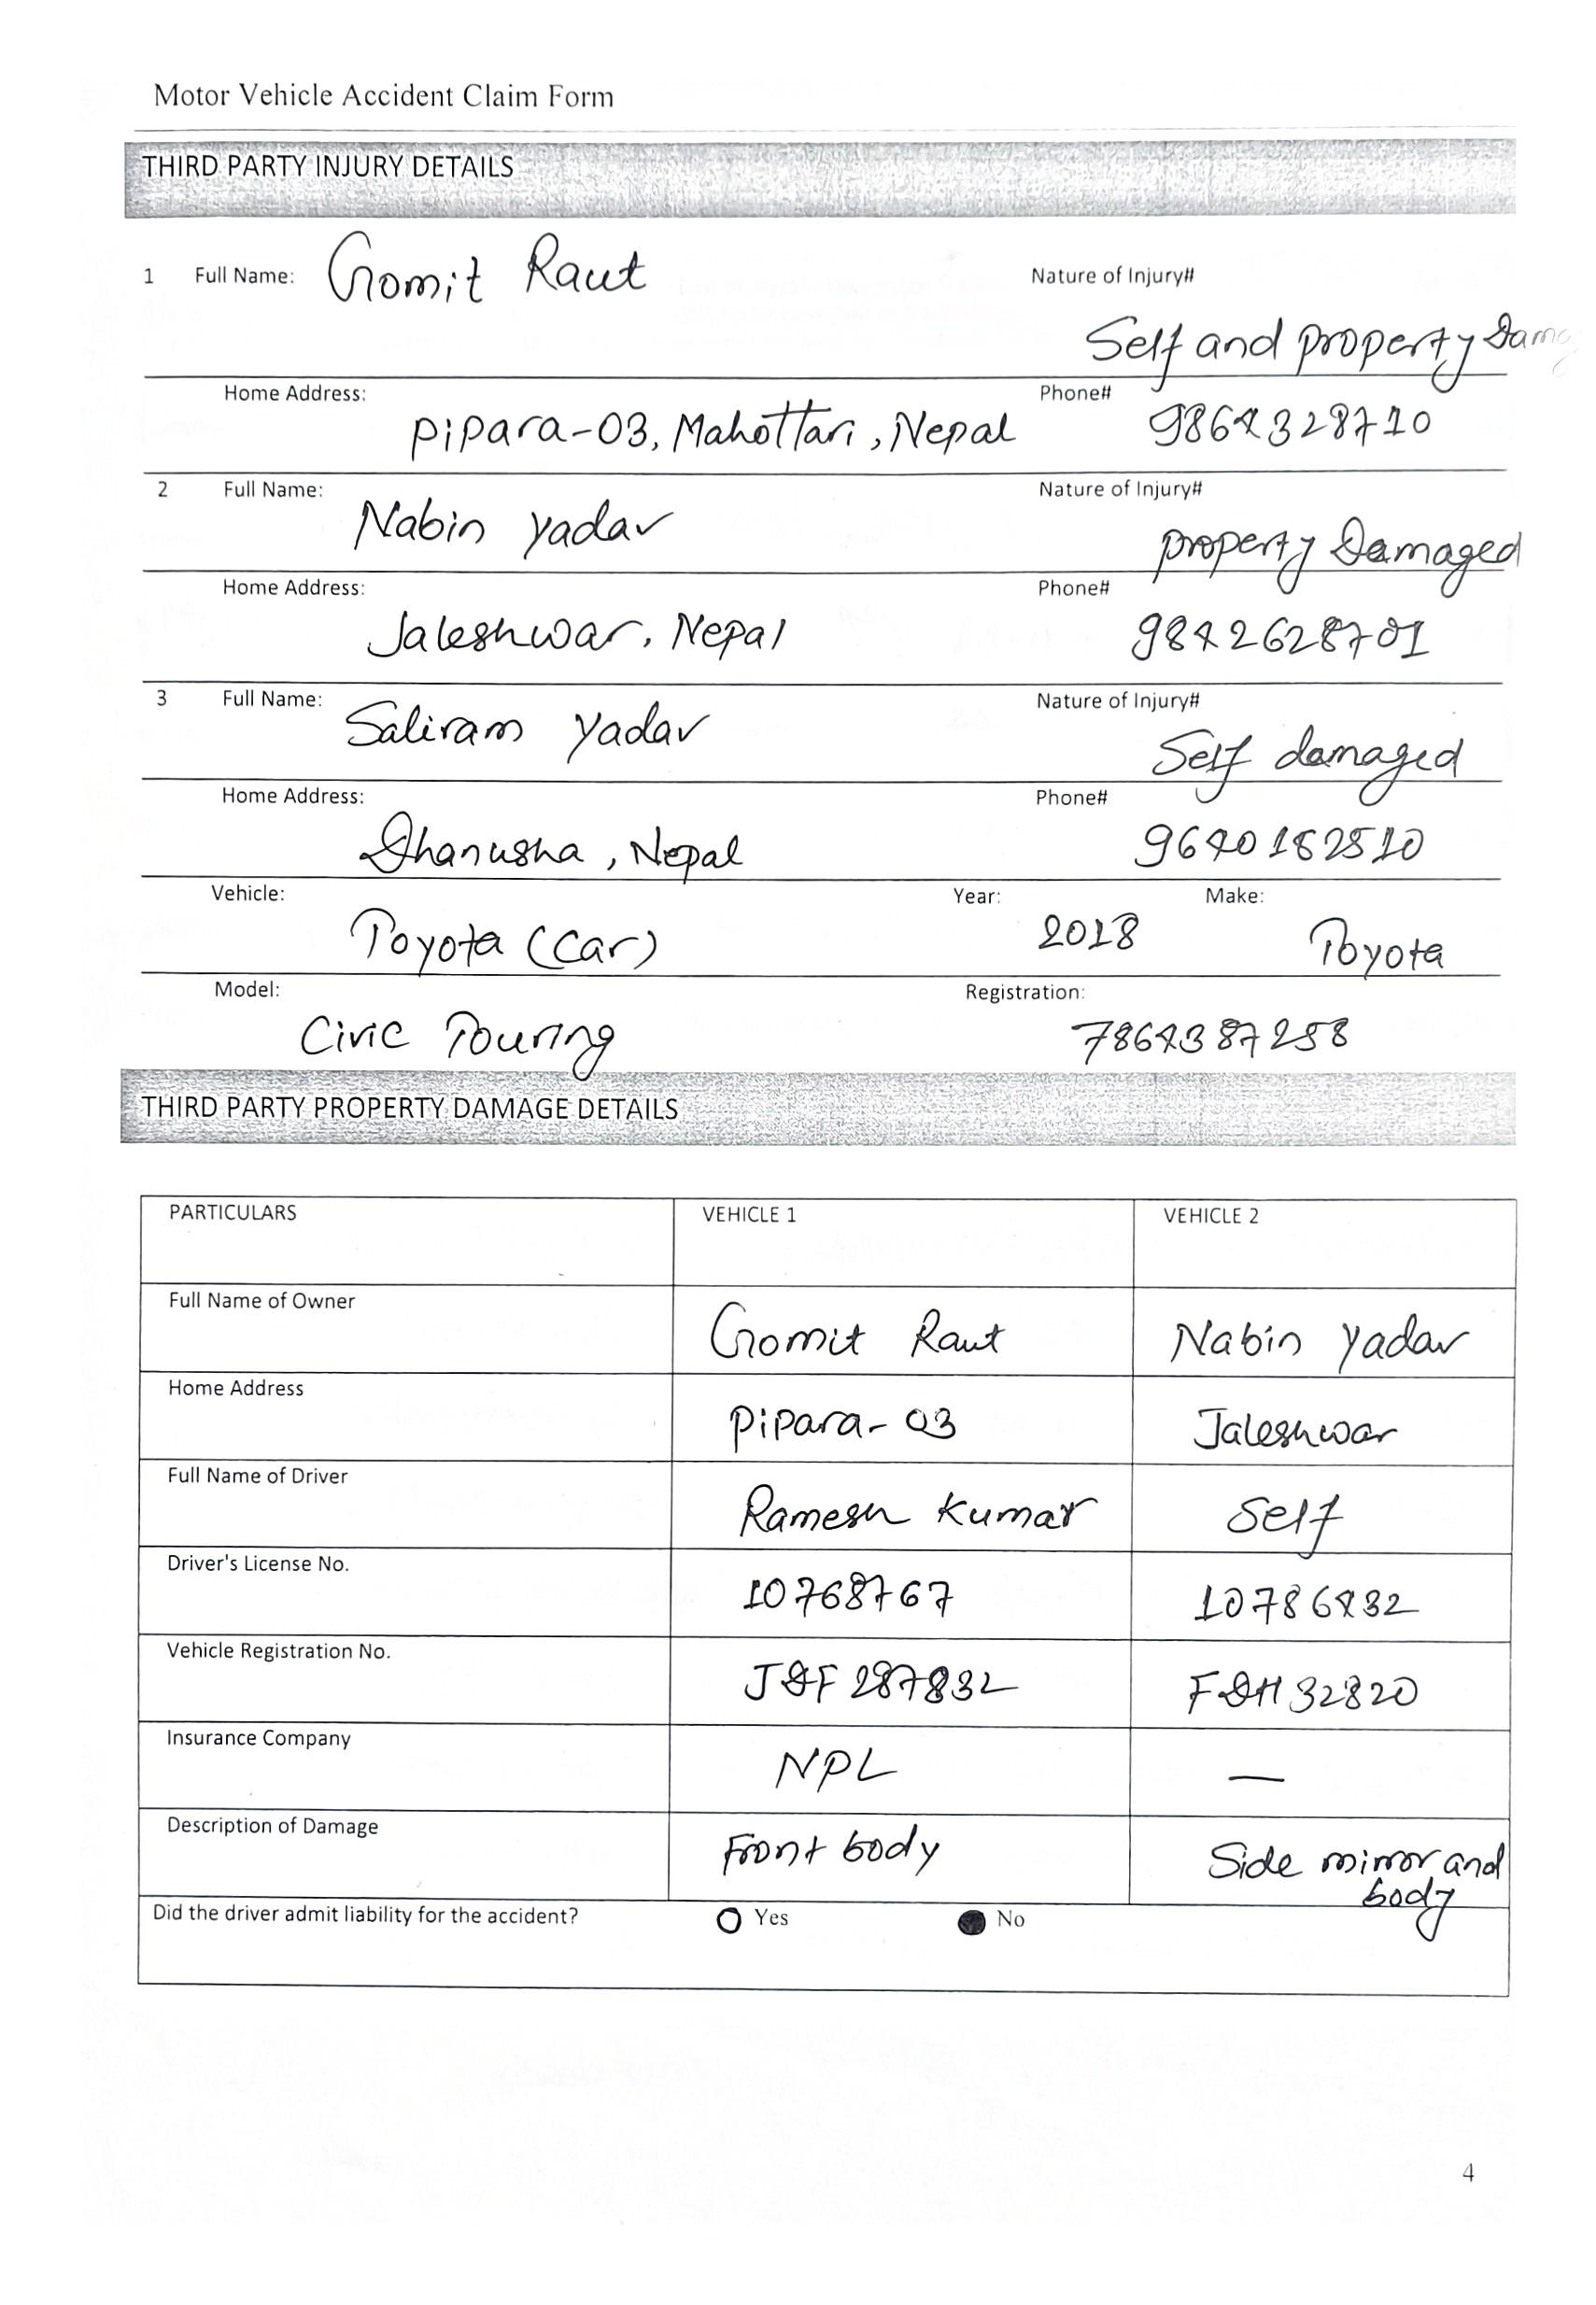 Motor Vehicle Accident Claim Form
THIRD PARTY INJURY DETAILS
1 Full Name: Gomit Raut Nature of Injury#
Self and property Dam
Home Address: Phone#
Pipara-03, Mahottari, Nepal 9864328710
2 Full Name: Nature of Injury#
Nabin Yadav property Damaged
Home Address: Phone#
Jaleshwar, Nepal 9842628701
3 Full Name: Nature of Injury#
Saliram Yadav Self damaged
Home Address: Phone#
Dhanusha, Nepal 9640182510
Vehicle: Year: Make:
Toyota (Car) 2018 Toyota
Model: Registration:
Civic Touring 7864387258
THIRD PARTY PROPERTY DAMAGE DETAILS
PARTICULARS VEHICLE 1 VEHICLE 2
Full Name of Owner Gomit Raut Nabin Yadav
Home Address Pipara-03 Jaleshwar
Full Name of Driver Ramesh Kumar Self
Driver's License No. 10768767 10786432
Vehicle Registration No. JDF 287832 FDH 32820
Insurance Company NPL —
Description of Damage Front body Side mirror and
body
Did the driver admit liability for the accident? Yes No
4